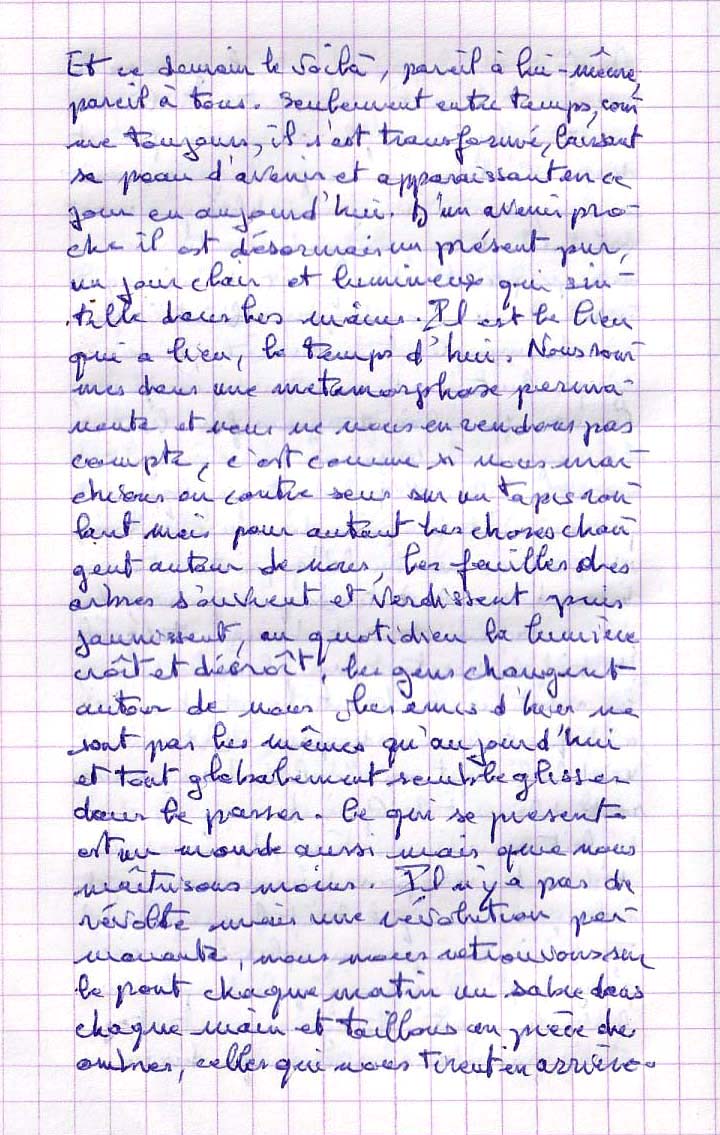 Et ce demain le voilà, pareil à lui-même,
pareil à tous. Seulement entre temps, com-
me toujours, il s'est transformé, laissant
sa peau d'avenir et apparaissant en ce
jour en aujourd'hui. D'un avenir pro-
che il est désormais un présent pur,
un jour clair et lumineux qui sin-
tille dans les mains. Il est le lieu
qui a lieu, le temps d'hui. Nous som-
mes dans une métamorphose perma-
nente et nous ne nous en rendons pas
compte, c'est comme si nous mar-
chions en contre sens sur un tapis rou-
lant mais pour autant les choses chan-
gent autour de nous, les feuilles des
arbres s'ouvrent et verdissent puis
jaunissent, au quotidien la lumière
croît et décroît, les gens changent
autour de nous, les amis d'hier ne
sont pas les mêmes qu'aujourd'hui
et tout globalement semble glisser
dans le passer. Ce qui se présente
est un monde aussi mais que nous
maîtrisons moins. Il n'y a pas de
révolte mais une révolution per-
manente, nous nous retrouvons sur
le pont chaque matin un sabre dans
chaque main et taillons en pièce des
ombres, celles qui nous tirent en arrière.